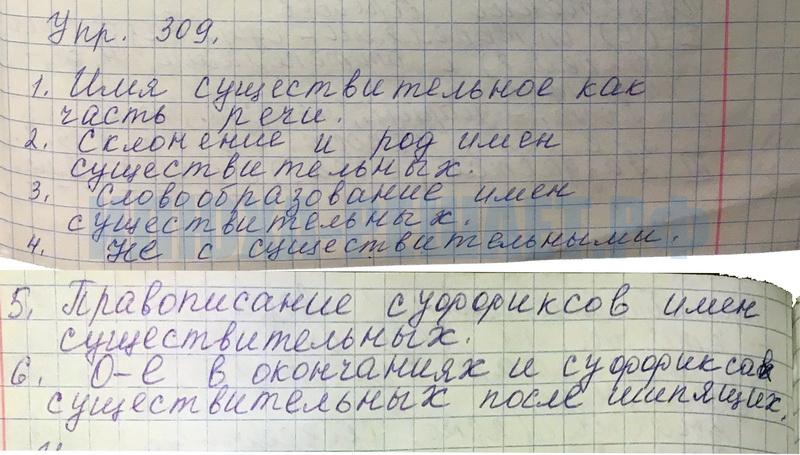 Упр. 309.
1. Имя существительное как
часть речи.
2. Склонение и род имен
существительных.
3. Словообразование имен
существительных.
4. Не с существительными.
5. Правописание суффиксов имен
существительных.
6. О-е в окончаниях и суффиксах
существительных после шипящих.